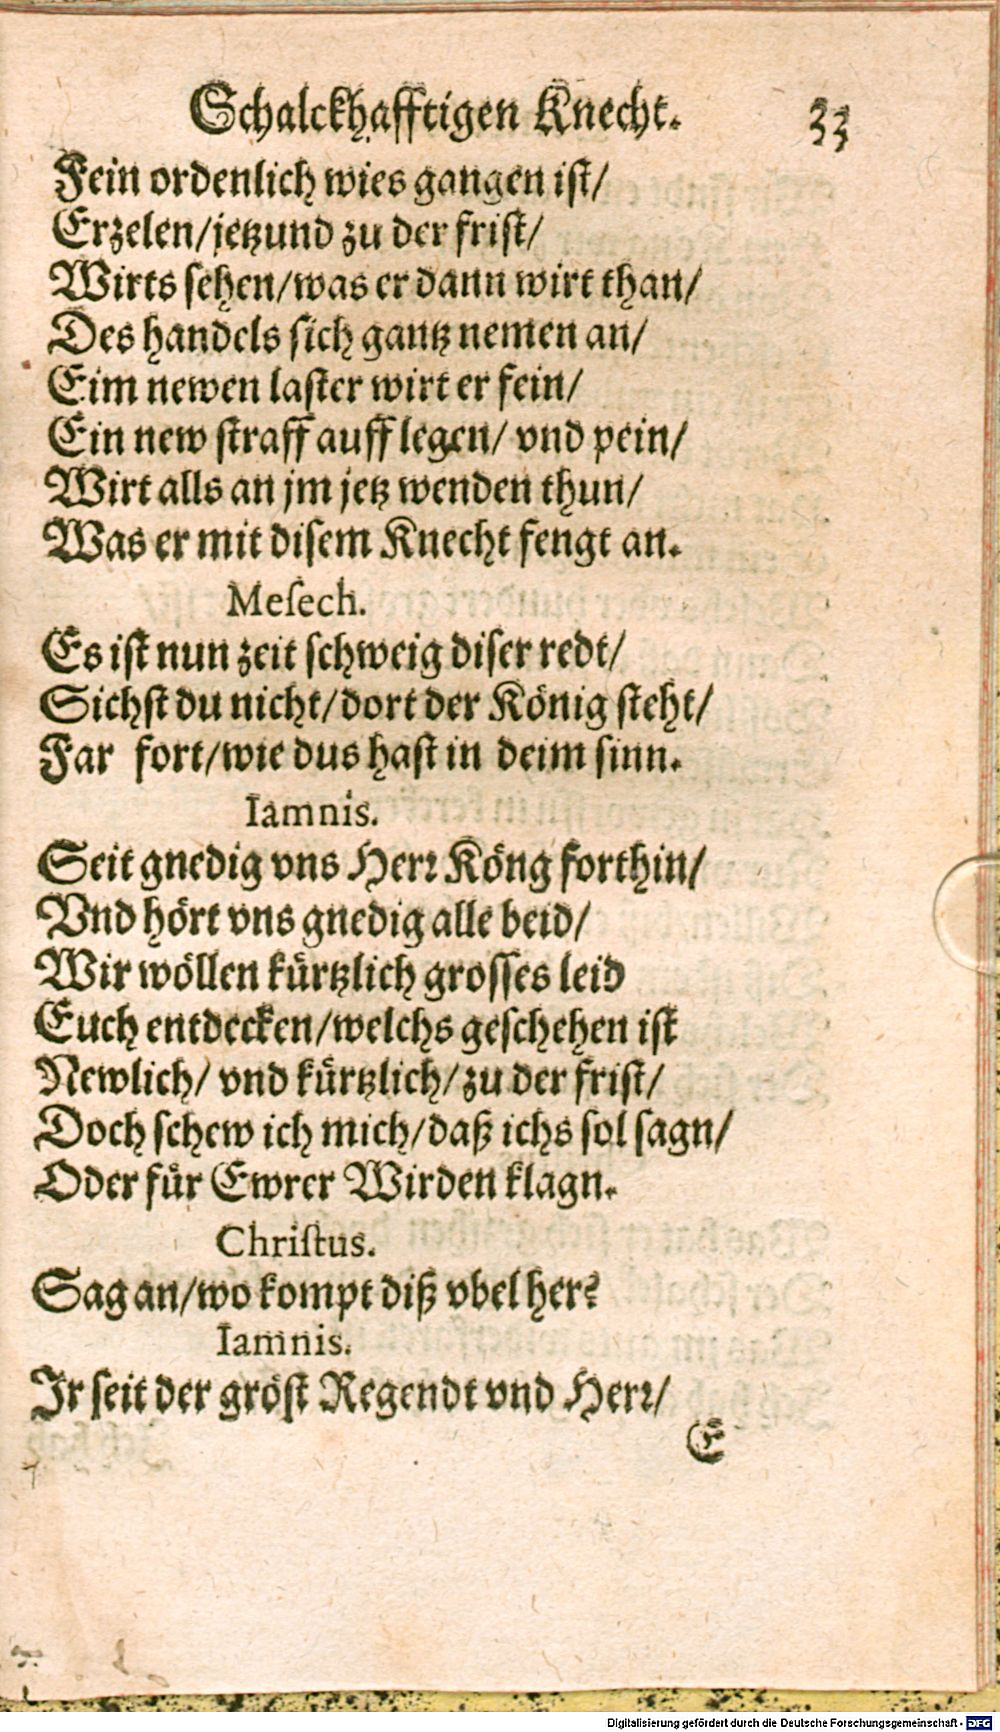 Schalckhafftigen Knecht. 33
Fein ordenlich wies gangen ist/
Erzelen/jetzund zu der frist/
Wirts sehen/was er dann wirt than/
Des handels sich gantz nemen an/
Eim newen laster wirt er fein/
Ein new straff auff legen/ vnd pein/
Wirt alls an jm jetz wenden thun/
Was er mit disem Knecht fengt an.
Mesech.
Es ist nun zeit schweig diser redt/
Sichst du nicht/dort der König steht/
Far fort/wie dus hast in deim sinn.
Iamnis.
Seit gnedig vns Herr Köng forthin/
Vnd hört vns gnedig alle beid/
Wir wöllen kürtzlich grosses leid
Euch entdecken/welchs geschehen ist
Newlich/ vnd kürtzlich/zu der frist/
Doch schew ich mich/daß ichs sol sagn/
Oder für Ewrer Wirden klagn.
Christus.
Sag an/wo kompt diß vbel her?
Iamnis.
Ir seit der gröst Regendt vnd Herr/
E
Digitalisierung gefördert durch die Deutsche Forschungsgemeinschaft - DFG